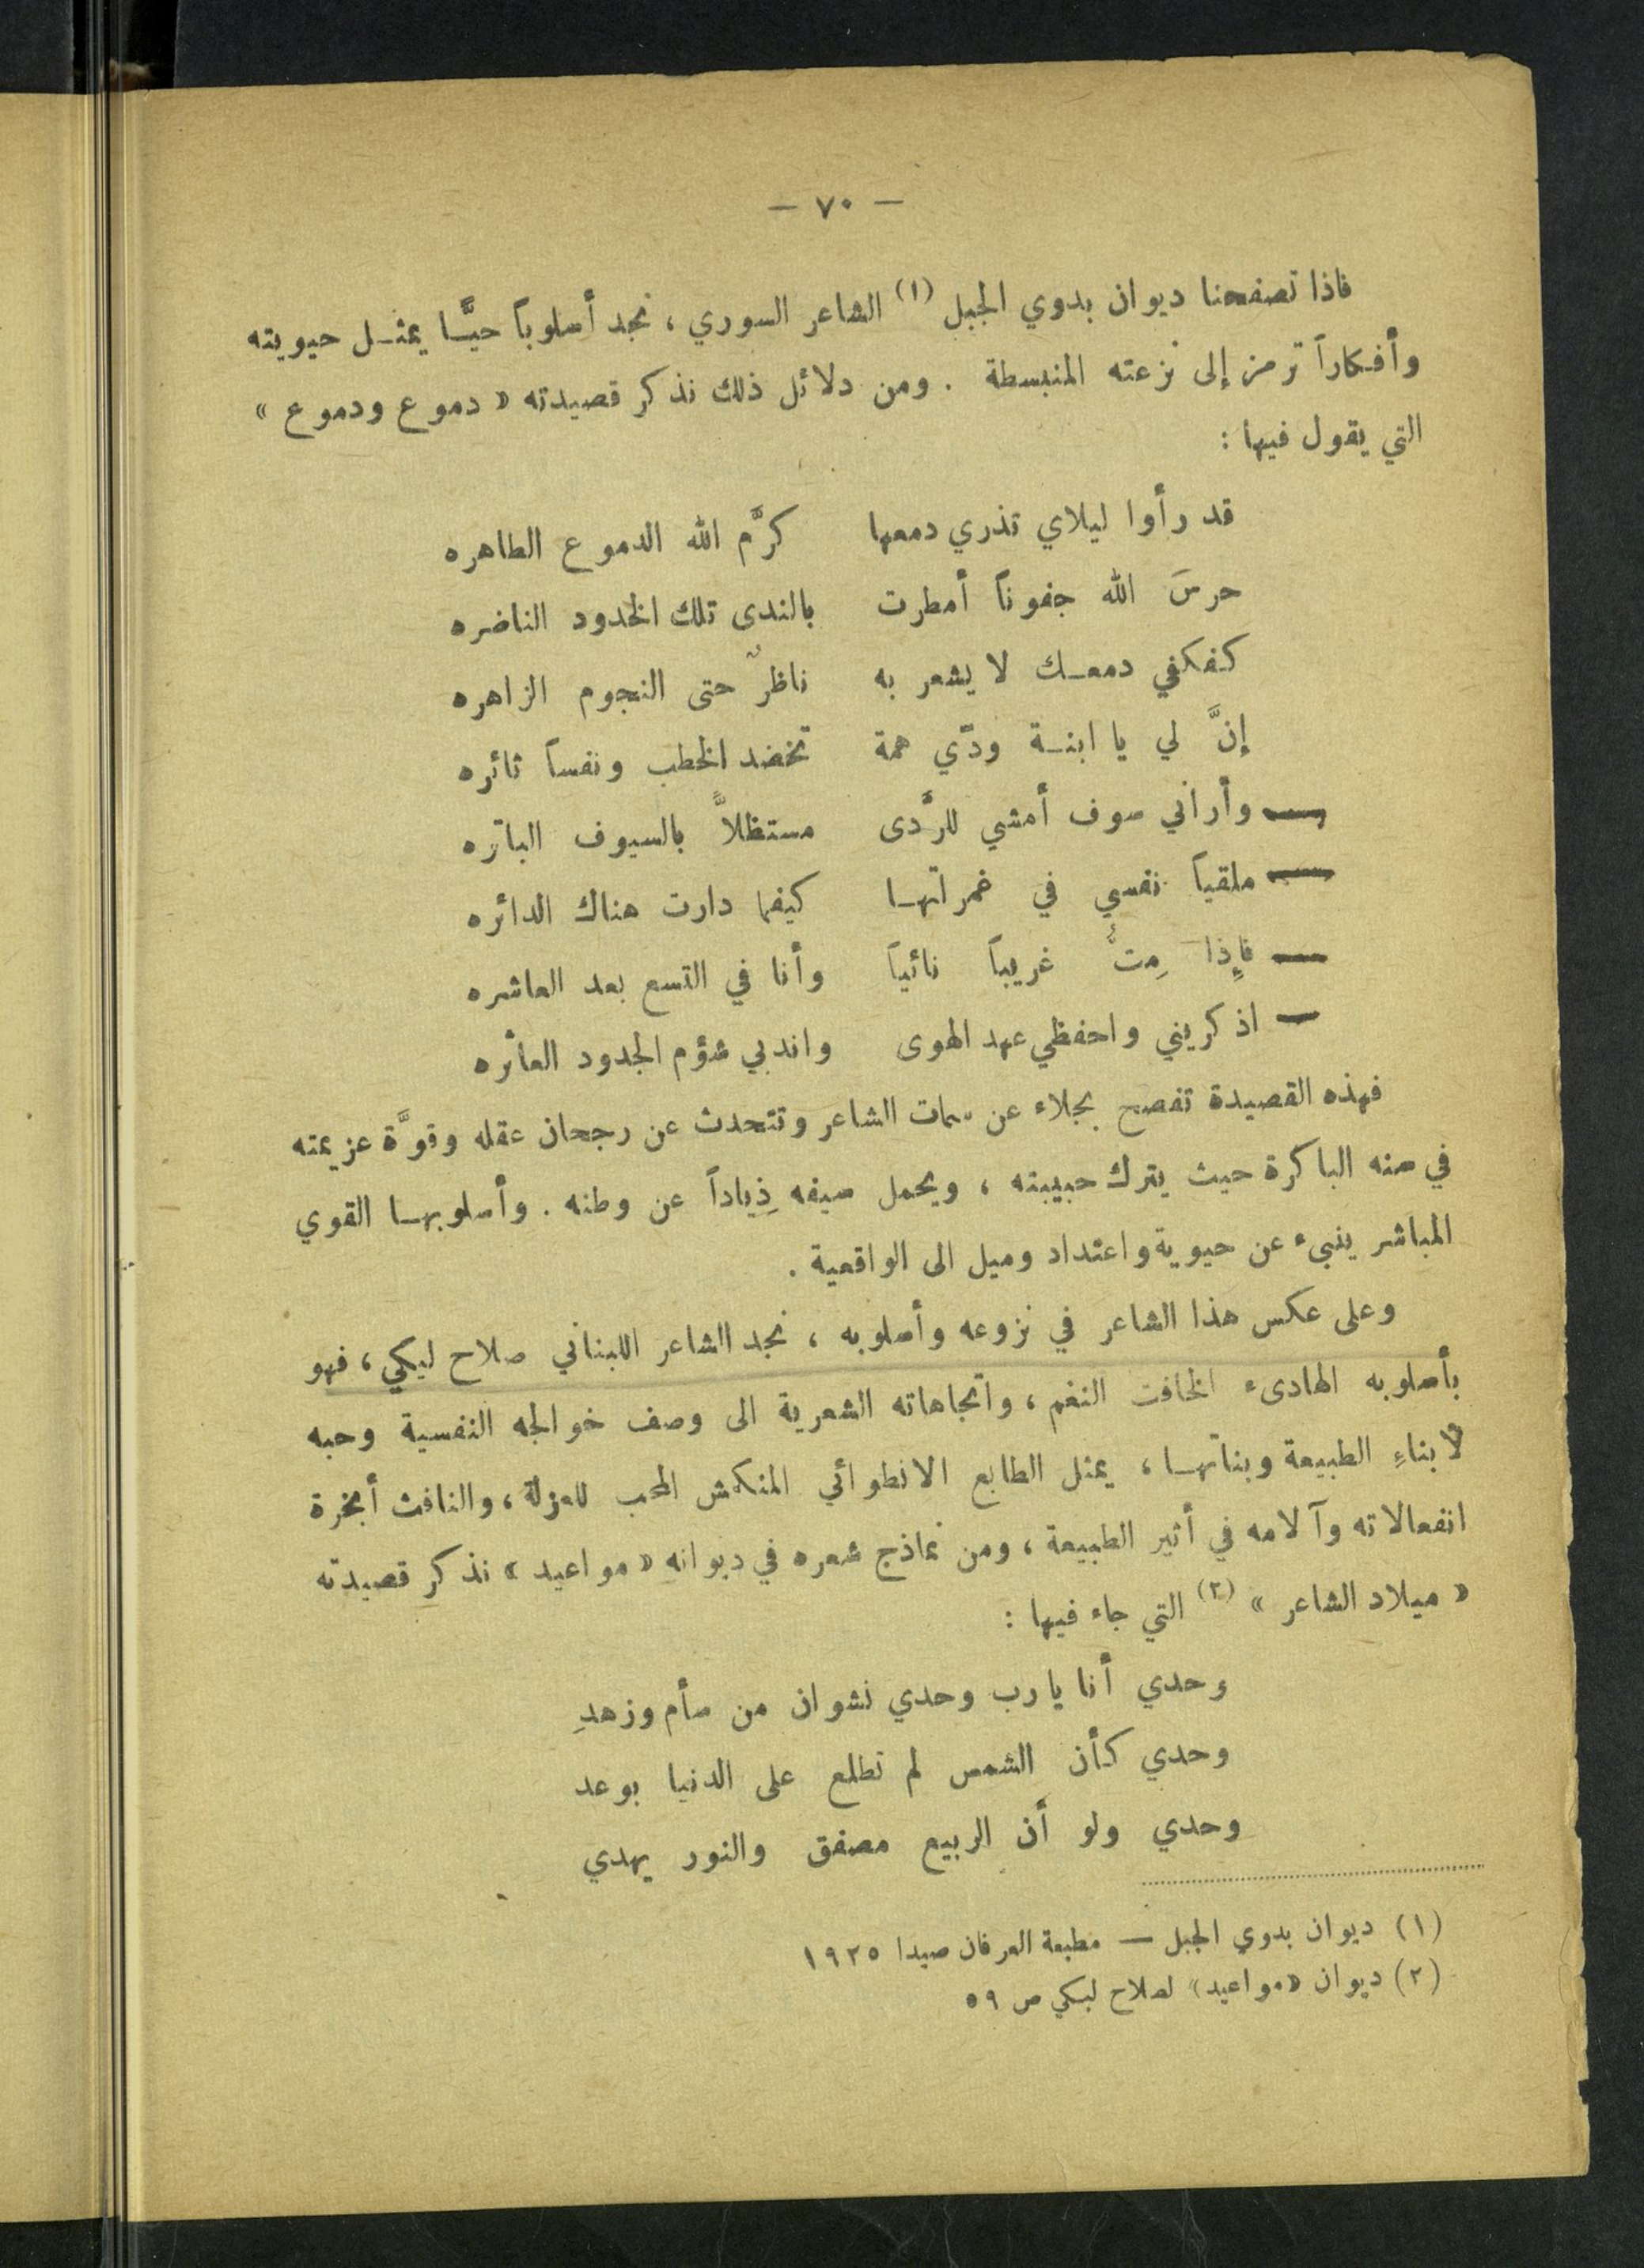 — ٧٠ —
فاذا تصفحنا ديوان بدوي الجبل (١) الشاعر السوري ، نجد أسلوباً حيًّا يمثل حيويته
وأفكاراً ترمز إلى نزعته المنبسطة . ومن دلائل ذلك نذكر قصيدته « دموع ودموع »
التي يقول فيها :
قد رأوا ليلاي تذري دمعها كرَّم الله الدموع الطاهره
حرسَ الله جفوناً أمطرت بالندى تلك الخدود الناضره
كفكفي دمعك لا يشعر به ناظرٌ حتى النجوم الزاهره
إنَّ لي يا ابنة ودّي همة تخضد الخطب ونفساً ثائره
وأراني سوف أمشي للرَّدى مستظلاًّ بالسيوف الباتره
ملقياً نفسي في غمراتها كيفما دارت هناك الدائره
فإذا مِتُّ غريباً نائياً وأنا في التسع بعد العاشره
اذكريني واحفظي عهد الهوى واندبي شؤم الجدود العاثره
فهذه القصيدة تفصح بجلاء عن سمات الشاعر وتتحدث عن رجحان عقله وقوَّة عزيمته
في سنه الباكرة حيث يترك حبيبته ، ويحمل سيفه ذِياداً عن وطنه . وأسلوبها القوي
المباشر ينبىء عن حيوية واعتداد وميل الى الواقعية .
وعلى عكس هذا الشاعر في نزوعه وأسلوبه ، نجد الشاعر اللبناني صلاح ليكي ، فهو
بأسلوبه الهادىء الخافت النغم ، واتجاهاته الشعرية الى وصف خوالجه النفسية وحبه
لابناءِ الطبيعة وبناتها ، يمثل الطابع الانطوائي المنكمش المحب للعزلة ، والنافث أبخرة
انفعالاته وآلامه في أثير الطبيعة ، ومن نماذج شعره في ديوانه « مواعيد » نذكر قصيدته
« ميلاد الشاعر » (٢) التي جاء فيها :
وحدي أنا يارب وحدي نشوان من سأم وزهدِ
وحدي كأن الشمس لم تطلع على الدنيا بوعد
وحدي ولو أن الربيع مصفق والنور يهدي
(١) ديوان بدوي الجبل — مطبعة العرفان صيدا ١٩٢٥
(٢) ديوان «مواعيد» لصلاح لبكي ص ٥٩